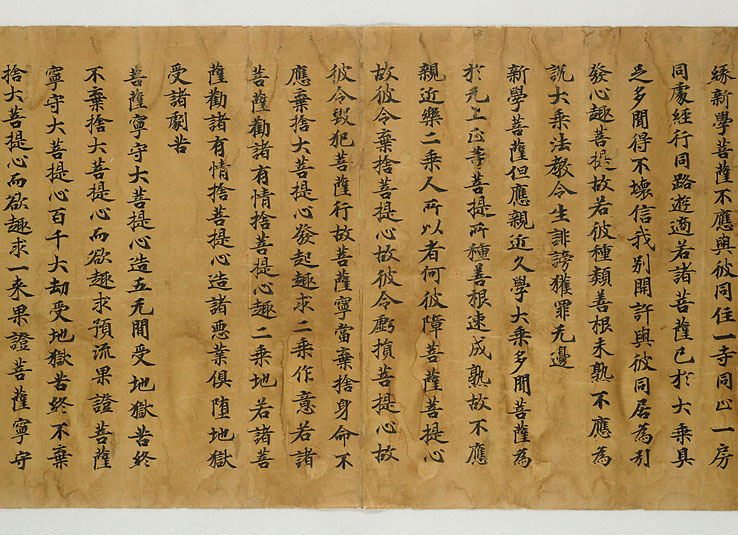 緣新學菩薩不應與彼同住一寺同止一房
同處經行同路遊適若諸菩薩已於大乘具
足多聞得不壞信我別開許與彼同居為引
發心趣菩提故若彼種類善根未熟不應為
說大乘法教令生誹謗獲罪无邊
新學菩薩但應親近久學大乘多聞菩薩為
於无上正等菩提所種善根速成熟故不應
親近樂二乘人所以者何彼障菩薩菩提心
故彼令棄捨菩提心故彼令虧損菩提心故
彼令毀犯菩薩行故菩薩寧當棄捨身命不
應棄捨大菩提心發起趣求二乘作意若諸
菩薩勸諸有情捨菩提心趣二乘地若諸菩
薩勸諸有情捨菩提心造諸惡業俱墮地獄
受諸劇苦
菩薩寧守大菩提心造五无間受地獄苦終
不棄捨大菩提心而欲趣求預流果證菩薩
寧守大菩提心百千大劫受地獄苦終不棄
捨大菩提心而欲趣求一来果證菩薩寧守